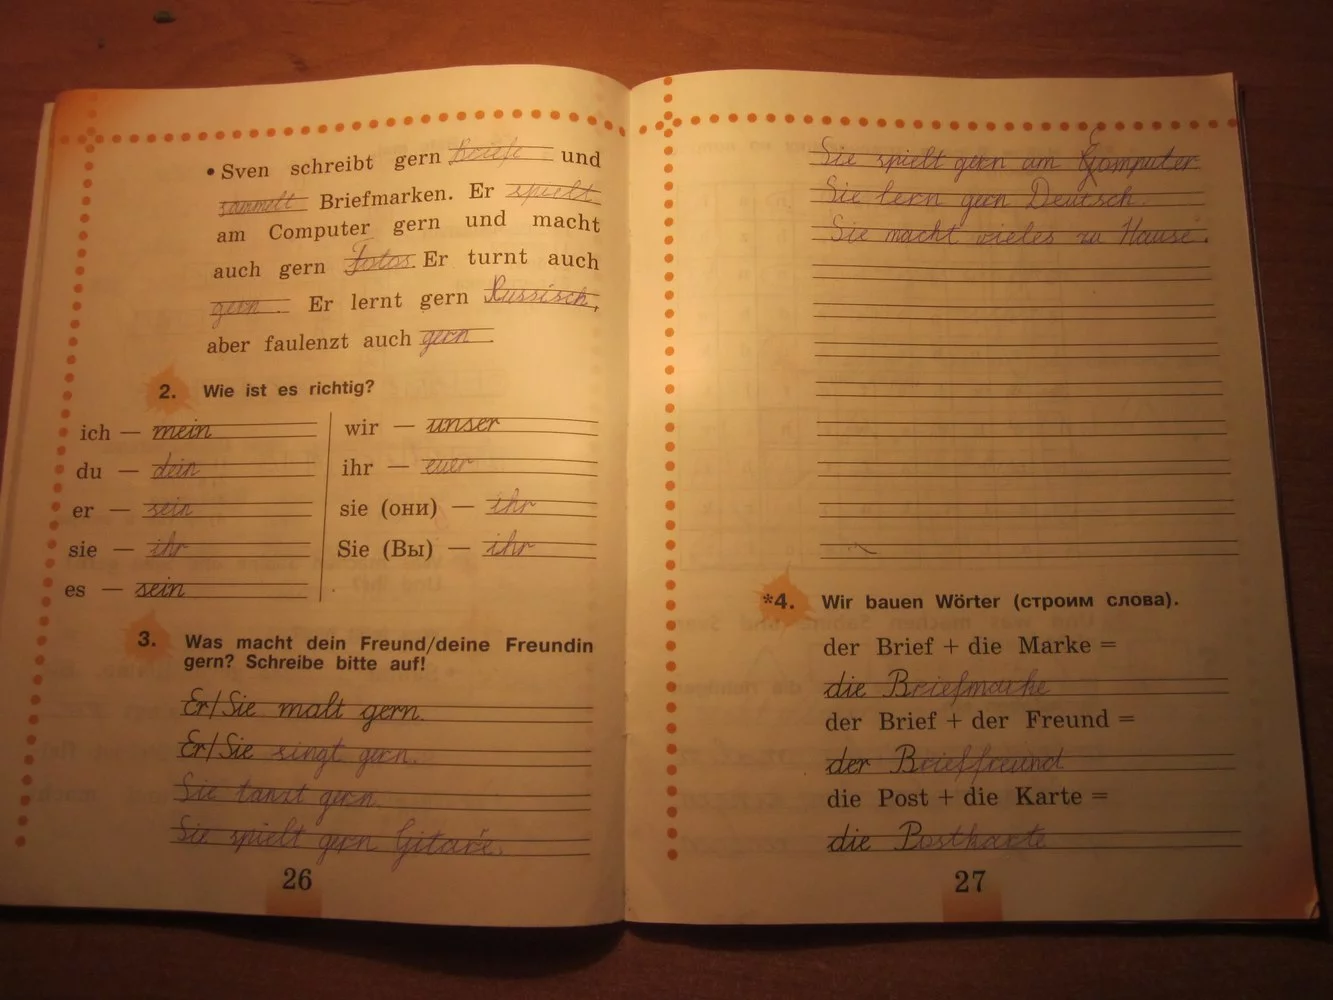 • Sven schreibt gern Briefe und
sammelt Briefmarken. Er spielt
am Computer gern und macht
auch gern Fotos. Er turnt auch
gern. Er lernt gern Russisch,
aber faulenzt auch gern.
2. Wie ist es richtig?
ich — mein
du — dein
er — sein
sie — ihr
es — sein
wir — unser
ihr — euer
sie (они) — ihr
Sie (Вы) — ihr
3. Was macht dein Freund/deine Freundin
gern? Schreibe bitte auf!
Er/Sie malt gern.
Er/Sie singt gern.
Sie tanzt gern.
Sie spielt gern Gitare.
26
Sie spielt gern am Computer.
Sie lern gern Deutsch.
Sie macht vieles zu Hause.
*4. Wir bauen Wörter (строим слова).
der Brief + die Marke =
die Briefmarke
der Brief + der Freund =
der Brieffreund
die Post + die Karte =
die Postkarte
27